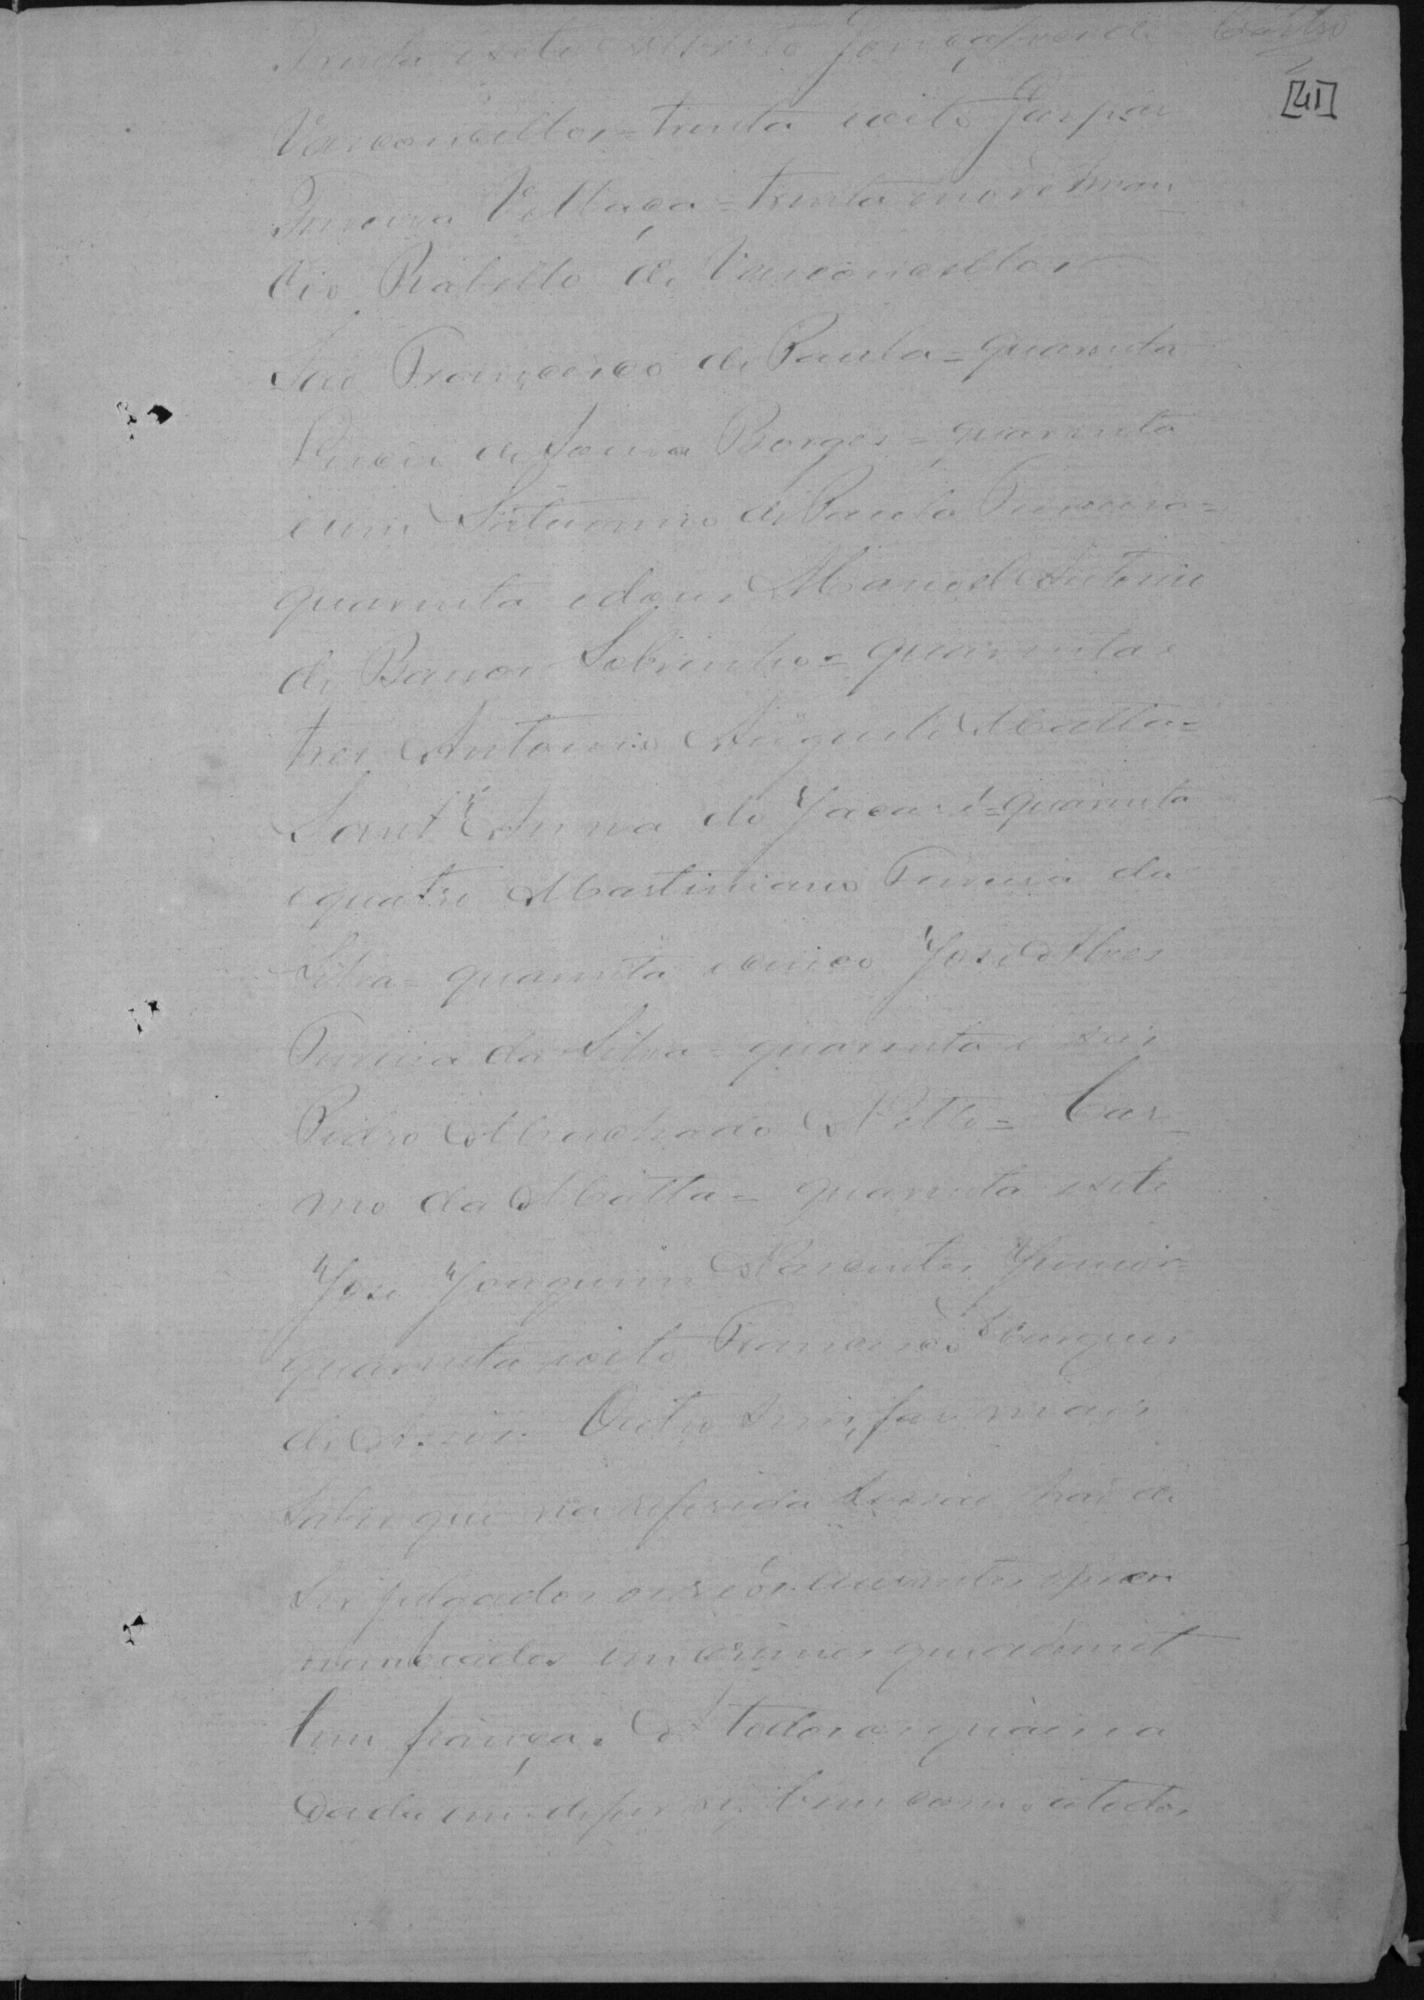 Trinta esete Alberto Gonçalves de Castro
[41]
Vasconcellos = trinta eoito Gaspar
Ferreira Villaça = trinta enove Aman
cio Rabello de Vasconcellos
São Francisco de Paula = quarenta
de Souza Borges = quarenta
eum Saturnino de Paula Ferreira =
quarenta edous Manoel Antonio
de Barros Sobrinho = quarenta e
tres Antonio Augusto Matta =
Sant'Anna do Jacaré = quarenta
equatro Martiniano Ferreira da
Silva = quarenta ecinco José Alves
Ferreira da Silva = quarenta e seis
Pedro Machado Netto = Car
mo da Matta = quarenta esete
José Joaquim Junior =
quarenta eoito Francisco
de Outro sim, faço mais
saber que na referida sessão hão de
ser julgados os réos auzentes epro
nunciados em crimes que admit
tem fiança. A todos os quaes e a
cada um de per si, bem como a todos